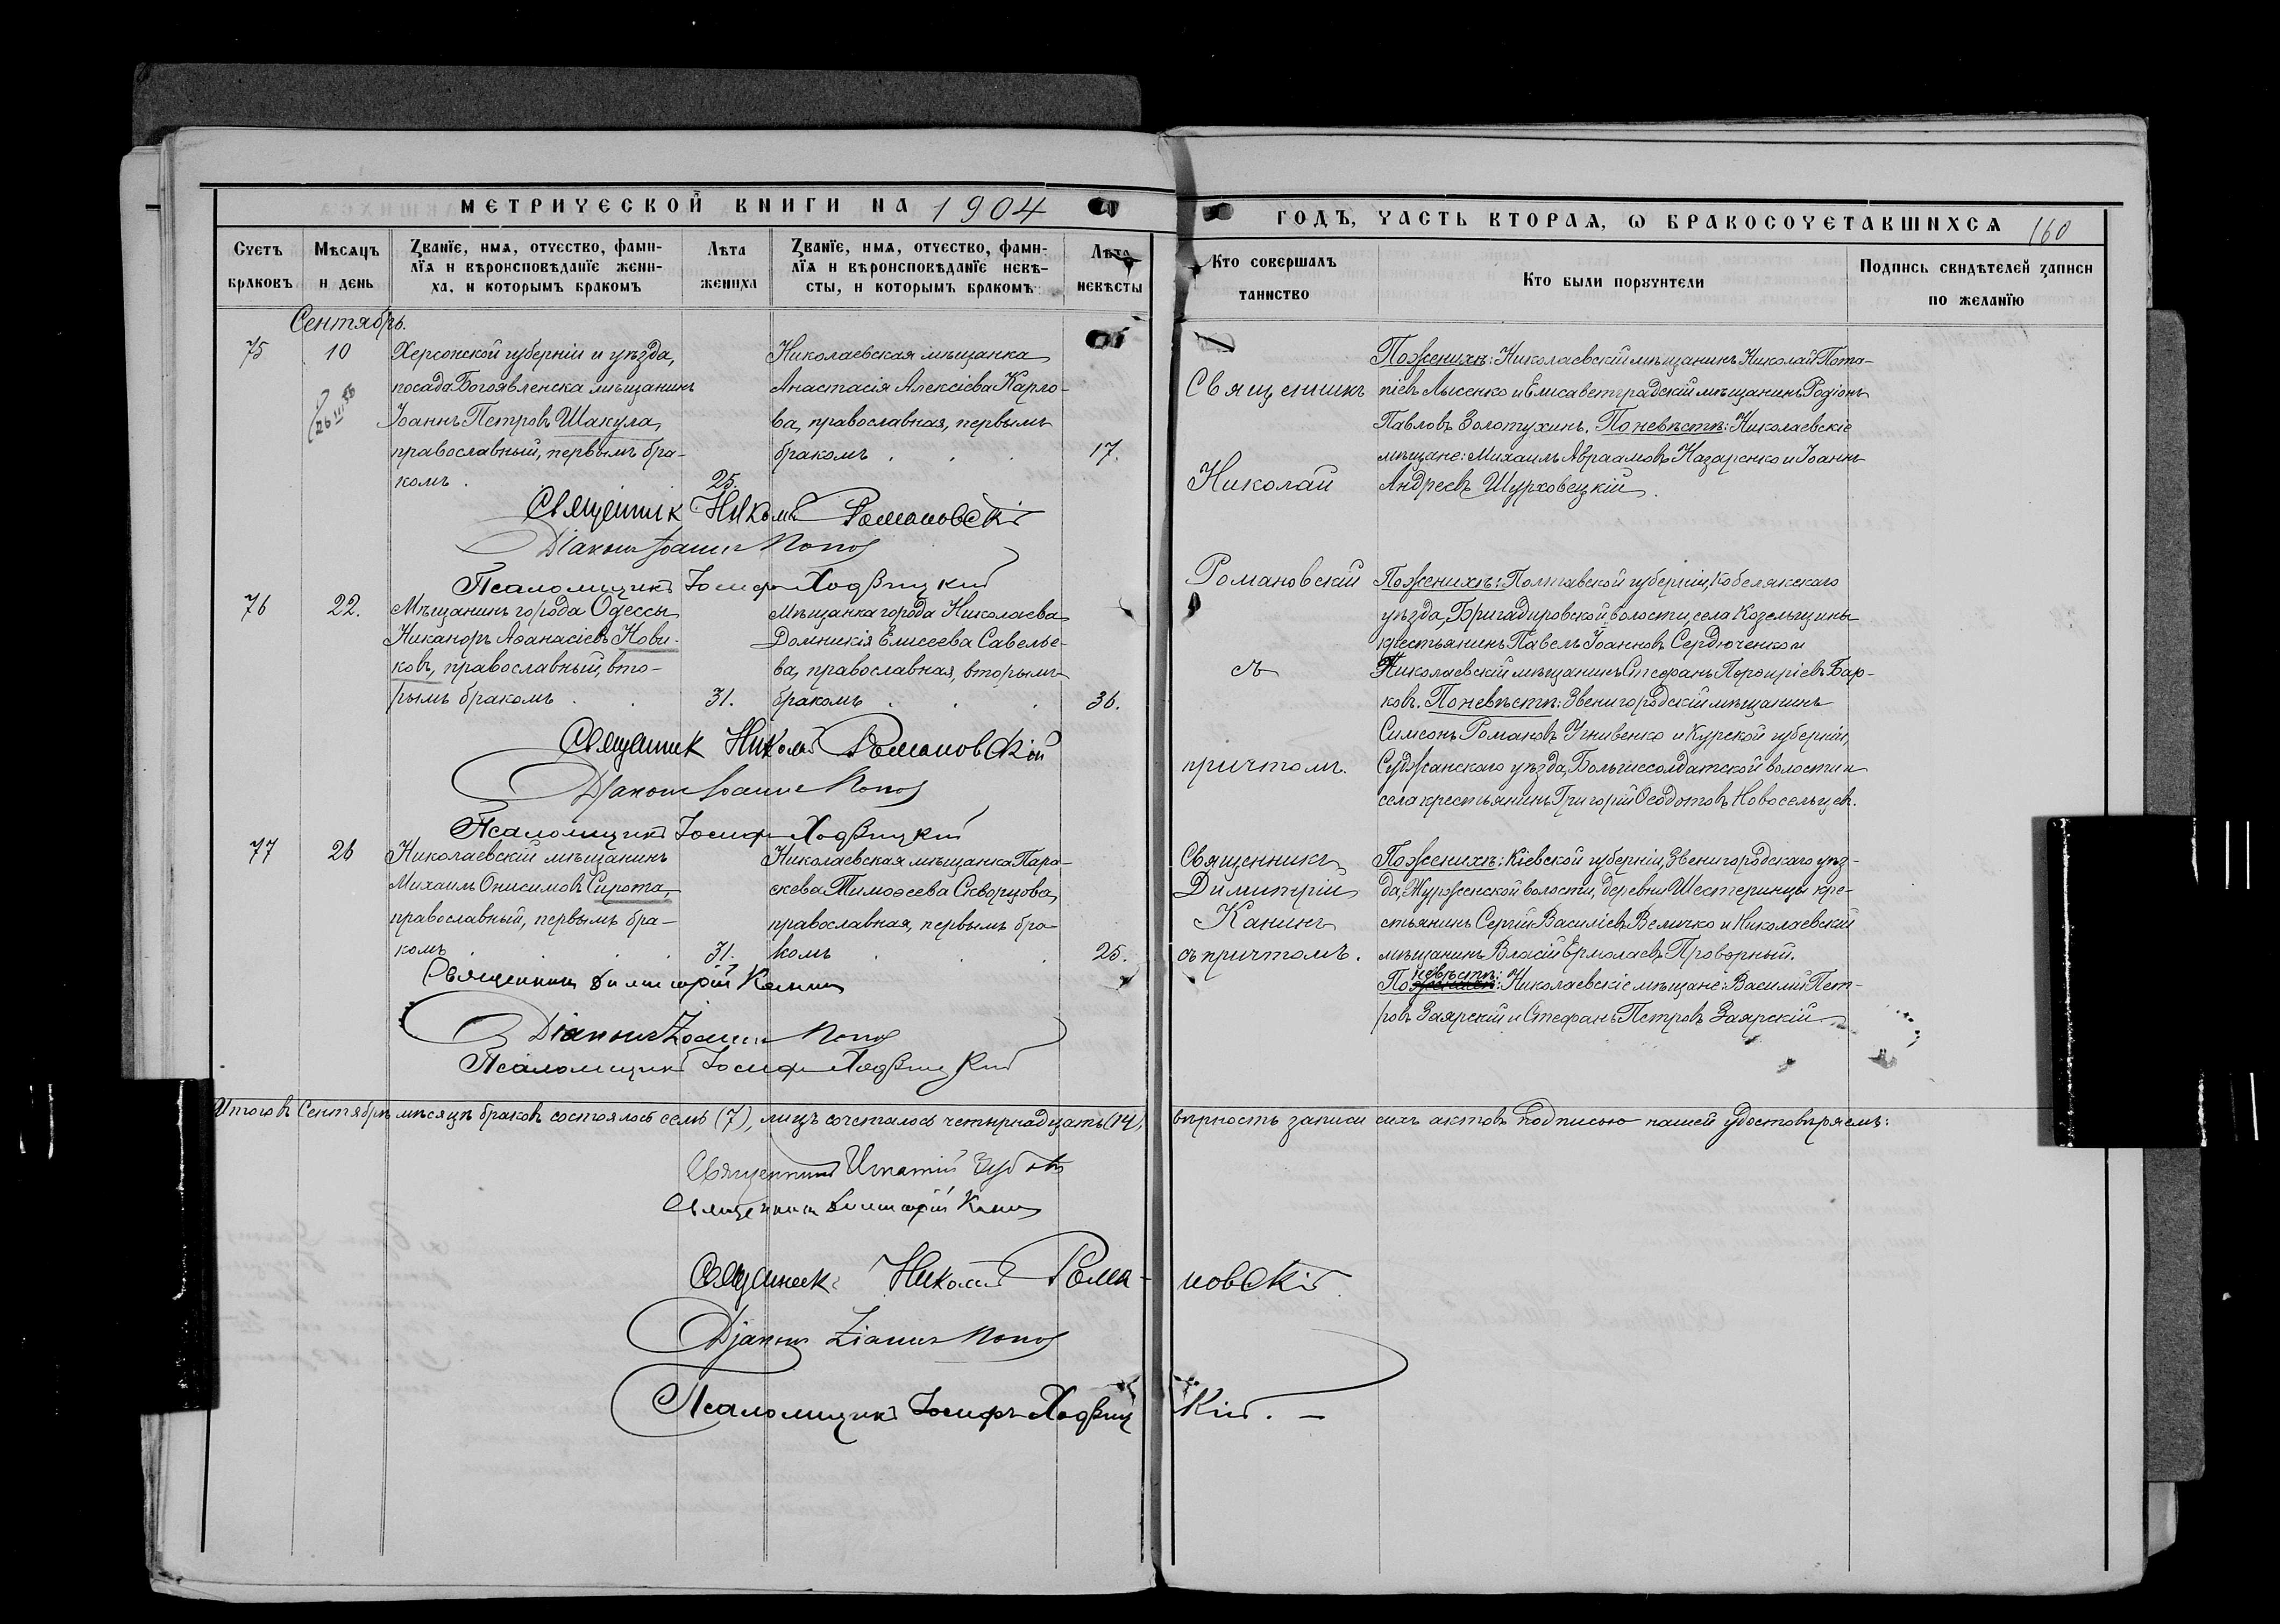 МЕТРИЧЕСКОЙ КНИГИ НА 1904
ГОДЪ, ЧАСТЬ ВТОРАѦ, Ѡ БРАКОСОЧЕТАВШИХСѦ 160
Счетъ браковъ
Мѣсѧцъ и день
Званїе, имѧ, отчество, фами-
лїѧ и вѣроисповѣданїе жени-
ха, и которымъ бракомъ
Лѣта жениха
Званїе, имѧ, отчество, фами-
лїѧ и вѣроисповѣданїе невѣ-
сты, и которымъ бракомъ
Лѣта невѣсты
Кто совершалъ
таинство
Кто были поручители
Подпись свидѣтелей записи
по желанїю
Сентябрь.
75
10
Херсонской губерніи и уѣзда,
посада Богоявленска мѣщанинъ
Іоаннъ Петровъ Шакула,
православный, первымъ бра-
комъ
25.
Николаевская мѣщанка
Анастасія Алексіева Карло-
ва, православная, первымъ
бракомъ
17.
Священникъ
Николай
Романовскій
съ
причтомъ.
По женихѣ: Николаевскій мѣщанинъ Николай Пота-
піевъ Лысенко и Елисаветградскій мѣщанинъ Родіонъ
Павловъ Золотухинъ. По невѣстѣ: Николаевскіе
мѣщане: Михаилъ Авраамовъ Назаренко и Іоаннъ
Андреевъ Шурховецкій.
Священник Николай Романовскій
Діаконъ Іоаннъ Попов
Псаломщикъ Іосифъ Ходзицкій
76
22.
Мѣщанинъ города Одессы
Никаноръ Аѳанасіевъ Нови-
ковъ, православный, вто-
рымъ бракомъ
31.
Мѣщанка города Николаева
Домникія Елисеева Савелье-
ва, православная, вторымъ
бракомъ
36.
По женихѣ: Полтавской губерніи, Кобелякскаго
уѣзда, Бригадировской волости, села Козельщины
крестьянинъ Павелъ Іоанновъ Сердюченко и
Николаевскій мѣщанинъ Стефанъ Порфиріевъ Бар-
ковъ. По невѣстѣ: Звенигородскій мѣщанинъ
Симеонъ Романовъ Угнивенко и Курской губерніи,
Суджанскаго уѣзда, Больше солдатской волости и
села крестьянинъ Григорій Ѳеодотовъ Новосельцевъ.
Священник Николай Романовскій
Діаконъ Іоаннъ Попов
Псаломщикъ Іосифъ Ходзицкій
77
26
Николаевскій мѣщанинъ
Михаилъ Онисимовъ Сирота,
православный, первымъ бра-
комъ
31.
Николаевская мѣщанка Пара-
скева Тимоѳеева Скворцова,
православная, первымъ бра-
комъ
25.
Священникъ
Димитрій
Канинъ
съ причтомъ.
По женихѣ: Кіевской губерніи, Звенигородскаго уѣз-
да, Журженской волости, деревни Шестеринцы кре-
стьянинъ Сергій Василіевъ Величко и Николаевскій
мѣщанинъ Власій Ермолаевъ Проворный.
По невѣстѣ: Николаевскіе мѣщане: Василій Пет-
ровъ Заярскій и Стефанъ Петровъ Заярскій
Священникъ Димитрій Канинъ
Діаконъ Іоаннъ Попов
Псаломщикъ Іосифъ Ходзицкій
Итого въ Сентябрѣ мѣсяцѣ браковъ состоялось семь (7), лицъ сочеталось четырнадцать (14), вѣрность записи сихъ актовъ подписью нашей удостовѣряемъ:
Священникъ Игнатій
Священникъ Димитрій Канинъ
Священникъ Николай Романовскій
Діаконъ Іоаннъ Попов
Псаломщикъ Іосифъ Ходзицкій. –